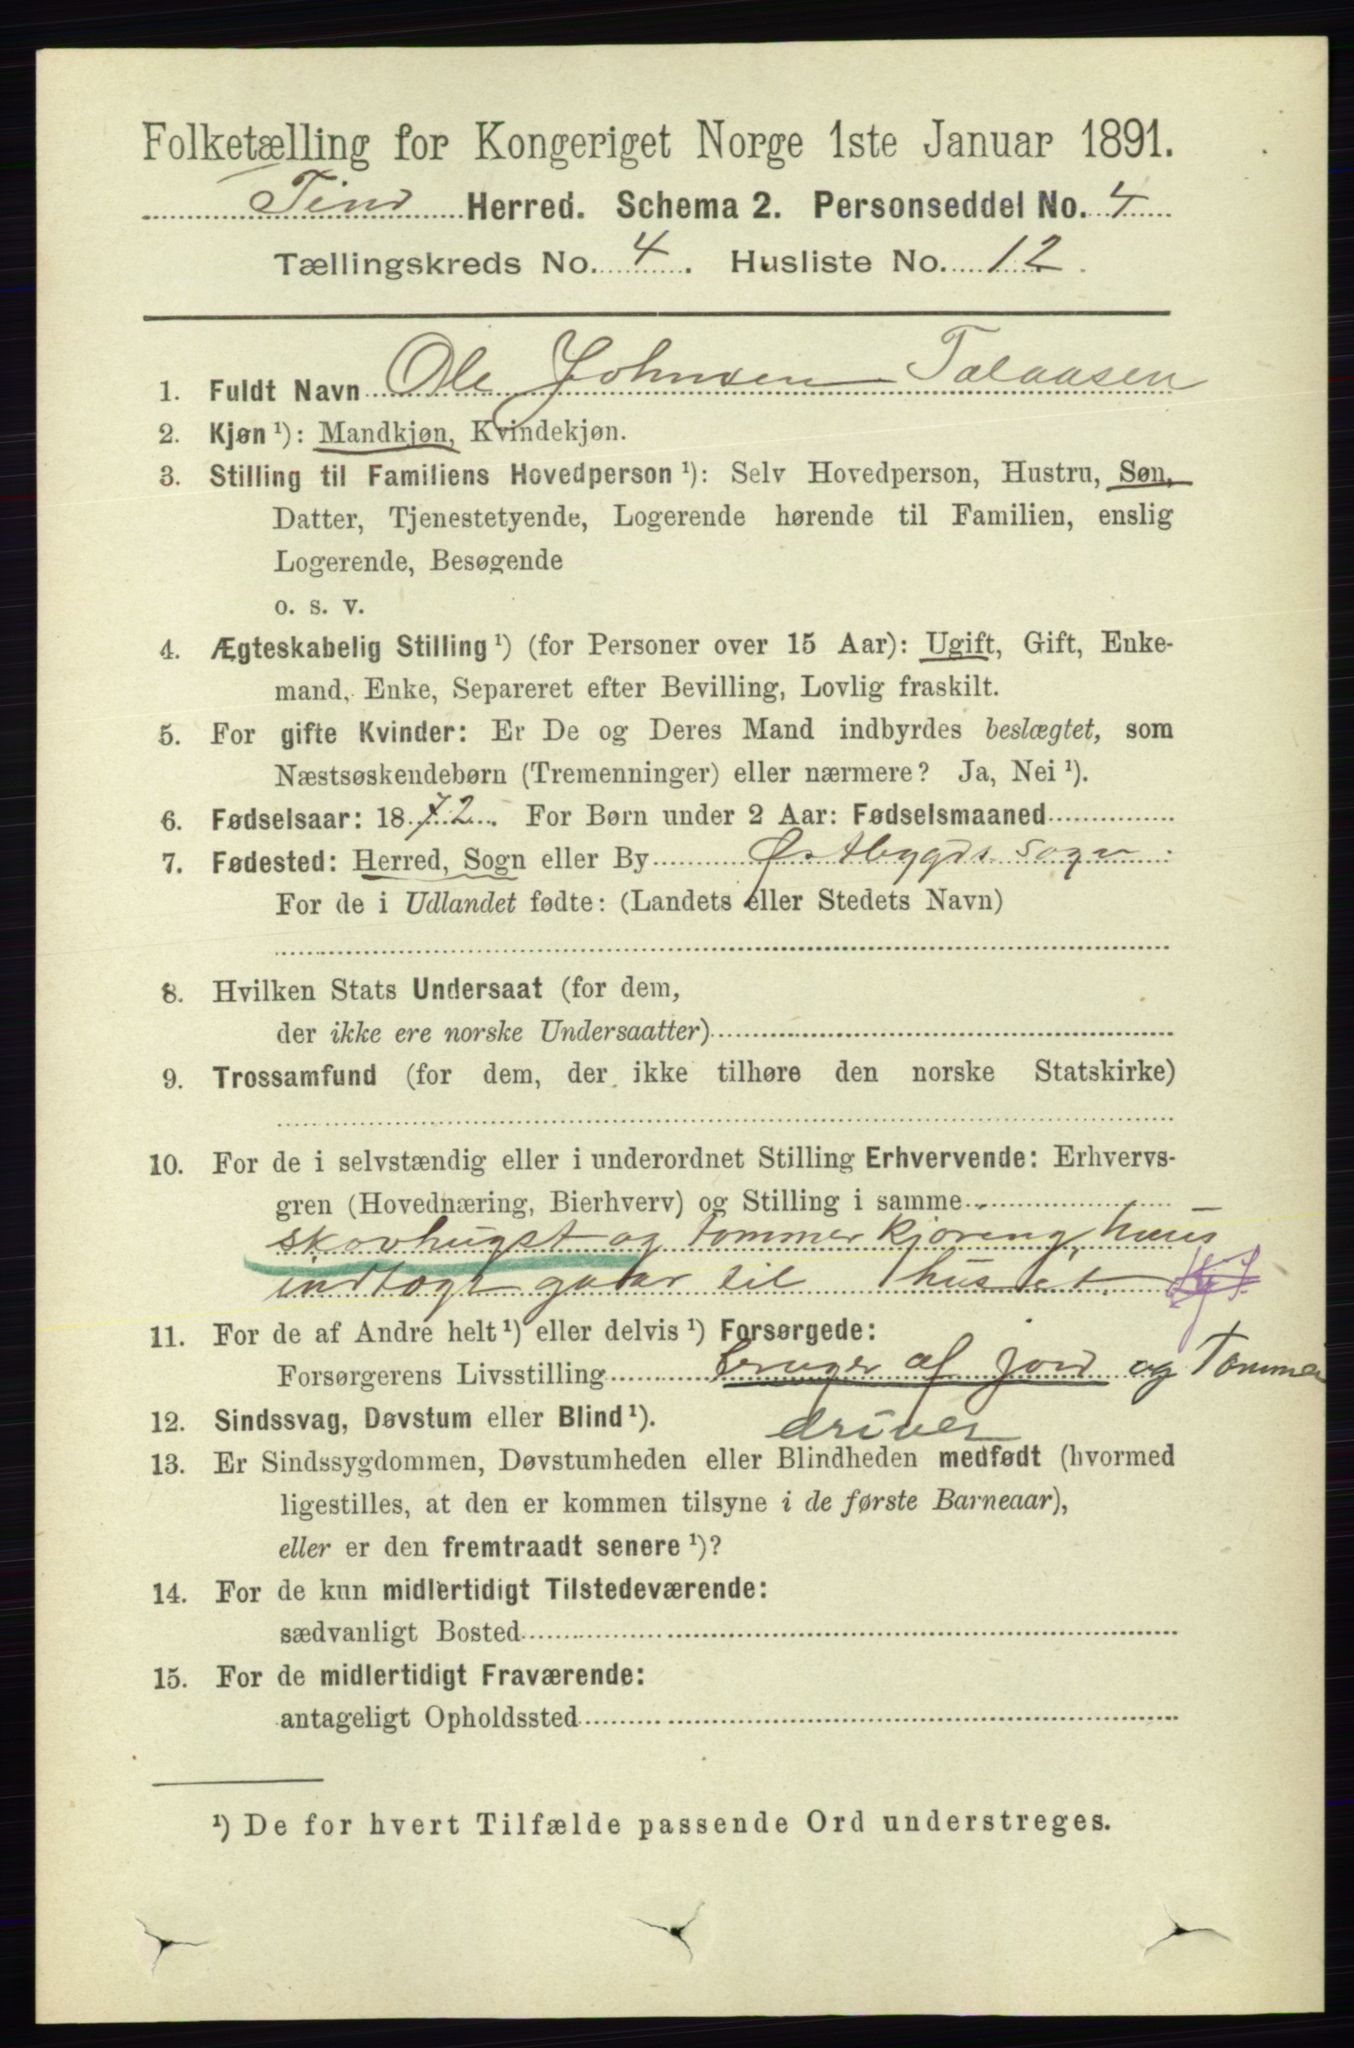 Folketælling for Kongeriget Norge 1ste Januar 1891.
Tind Herred. Schema 2. Personseddel No. 4
Tællingskreds No. 4. Husliste No. 12.
1. Fuldt Navn Ole Johnsen Talaasen
2. Kjøn ¹): Mandkjøn, Kvindekjøn.
3. Stilling til Familiens Hovedperson ¹): Selv Hovedperson, Hustru, Søn,
Datter, Tjenestetyende, Logerende hørende til Familien, enslig
Logerende, Besøgende
o. s. v.
4. Ægteskabelig Stilling ¹) (for Personer over 15 Aar): Ugift, Gift, Enke-
mand, Enke, Separeret efter Bevilling, Lovlig fraskilt.
5. For gifte Kvinder: Er De og Deres Mand indbyrdes beslægtet, som
Næstsøskendebørn (Tremenninger) eller nærmere? Ja, Nei ¹).
6. Fødselsaar: 1872. For Børn under 2 Aar: Fødselsmaaned
7. Fødested: Herred, Sogn eller By Østbygds sogn
For de i Udlandet fødte: (Landets eller Stedets Navn)
8. Hvilken Stats Undersaat (for dem,
der ikke ere norske Undersaatter)
9. Trossamfund (for dem, der ikke tilhøre den norske Statskirke)
10. For de i selvstændig eller i underordnet Stilling Erhvervende: Erhvervs-
gren (Hovednæring, Bierhverv) og Stilling i samme
skovhugst og tommerkjøreng hans
indtægt gaar til huset.
11. For de af Andre helt ¹) eller delvis ¹) Forsørgede:
Forsørgerens Livsstilling bruger af jord og Tommer
driver
12. Sindssvag, Døvstum eller Blind ¹).
13. Er Sindssygdommen, Døvstumheden eller Blindheden medfødt (hvormed
ligestilles, at den er kommen tilsyne i de første Barneaar),
eller er den fremtraadt senere ¹)?
14. For de kun midlertidigt Tilstedeværende:
sædvanligt Bosted
15. For de midlertidigt Fraværende:
antageligt Opholdssted
¹) De for hvert Tilfælde passende Ord understreges.